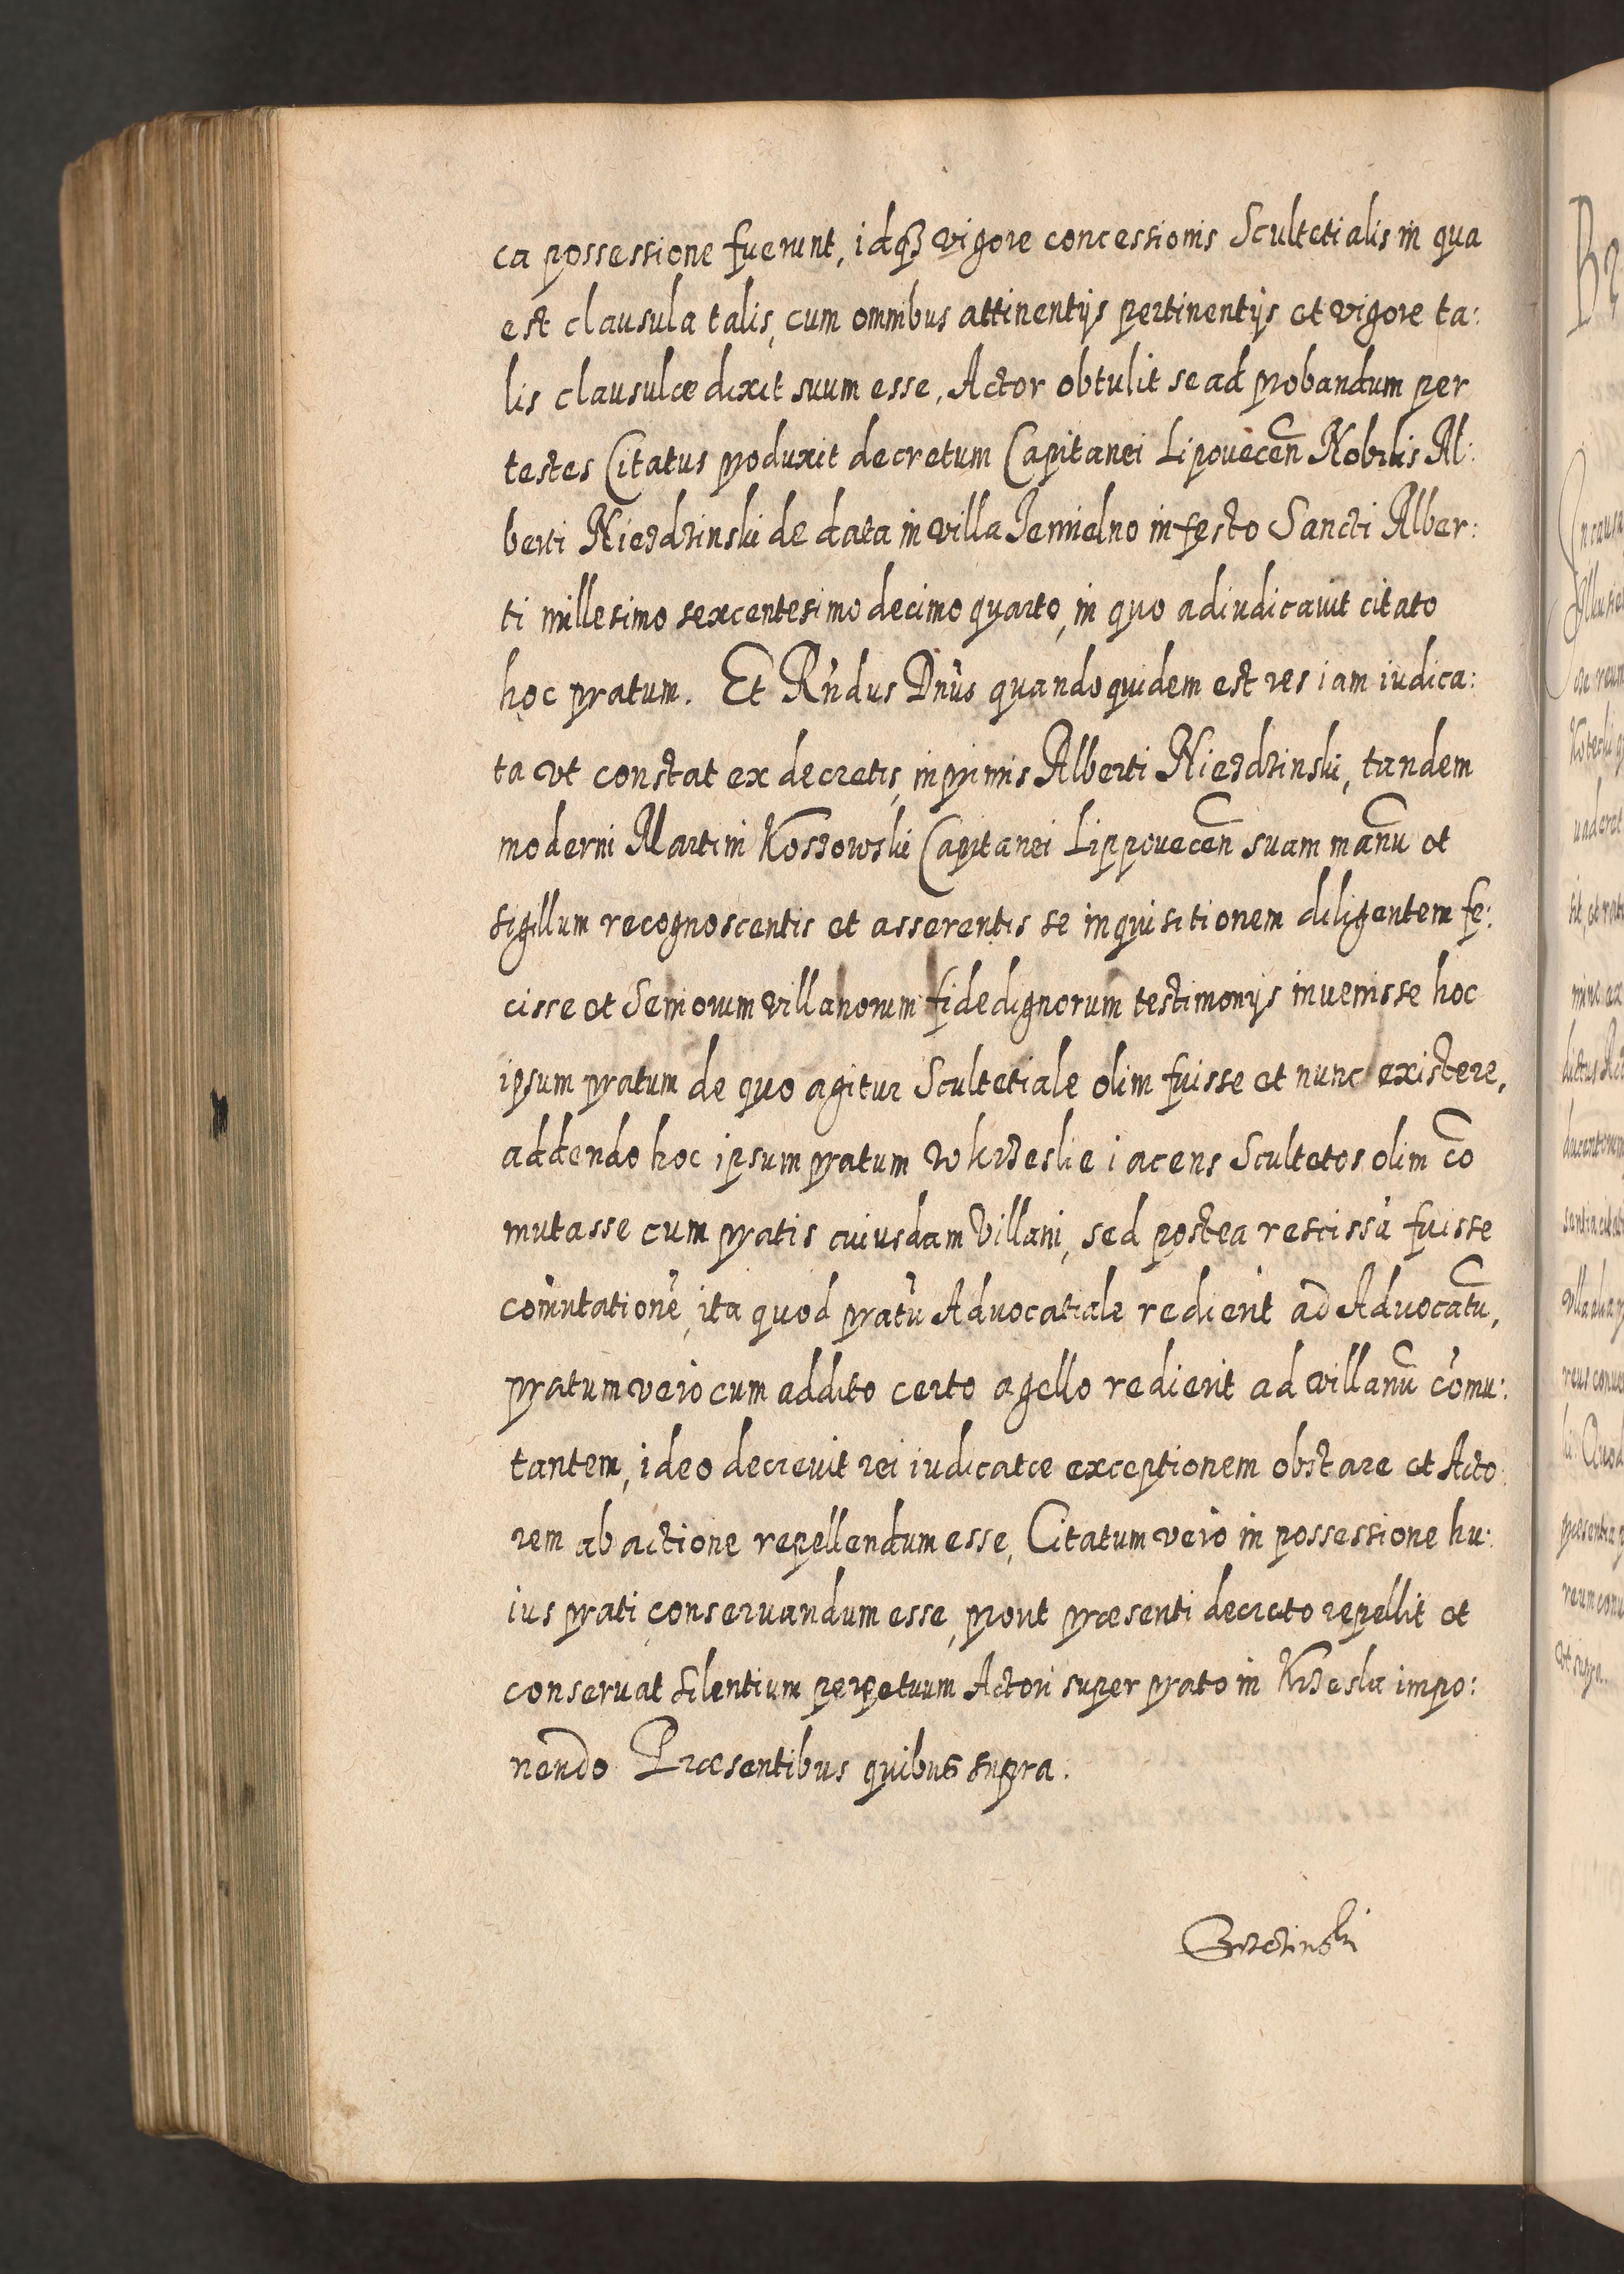 ca possessione fuerunt, idq3 vigore concessionis Scultetialis in qua
est clausula talis, cum omnibus attinentijs pertinentijs et vigore ta:
lis clausulæ dixit suum esse, Actor obtulit se ad probandum per
testes Citatus produxit decretum Capitanei Lipovecen̄ Nobilis Al:
berti Niezdzinski de data in villa Jemielno in festo Sancti Alber:
ti millesimo sexcentesimo decimo quarto, in quo adiudicavit citato
hoc pratum. Et Rndus Dnus quandoquidem est res iam iudica:
ta vt constat ex decretis, inprimis Alberti Niezdzinski, tandem
moderni Martini Kossowski Capitanei Lippovecen̄ suam manū et
sigillum recognoscentis et asserentis se inquisitionem diligentem fe:
cisse et Seniorum villanorum fidedignorum testimonijs invenisse hoc
ipsum pratum de quo agitur Scultetiale olim fuisse et nunc existere,
addendo hoc ipsum pratum w krzeslie iacens Scultetos olim cō
mutasse cum pratis cuiusdam Villani, sed postea rescissā fuisse
com̄utationē, ita quod pratū Advocatiale redierit ad Advocatū,
pratum vero cum addito certo agello redierit ad villanū com̄u:
tantem, ideo decrevit rei iudicatæ exceptionem obstare et Acto:
rem ab actione repellendum esse, Citatum vero in possessione hu:
ius prati conservandum esse, prout præsenti decreto repellit et
conservat silentium perpetuum Actori super prato in Krzesla impo:
nendo Præsentibus quibus supra.